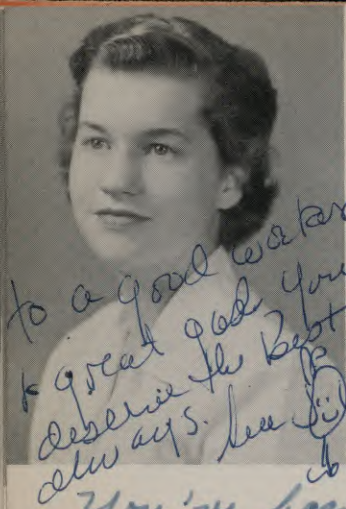 to a good worker
& great gal. You
deserve the best
always.
You've